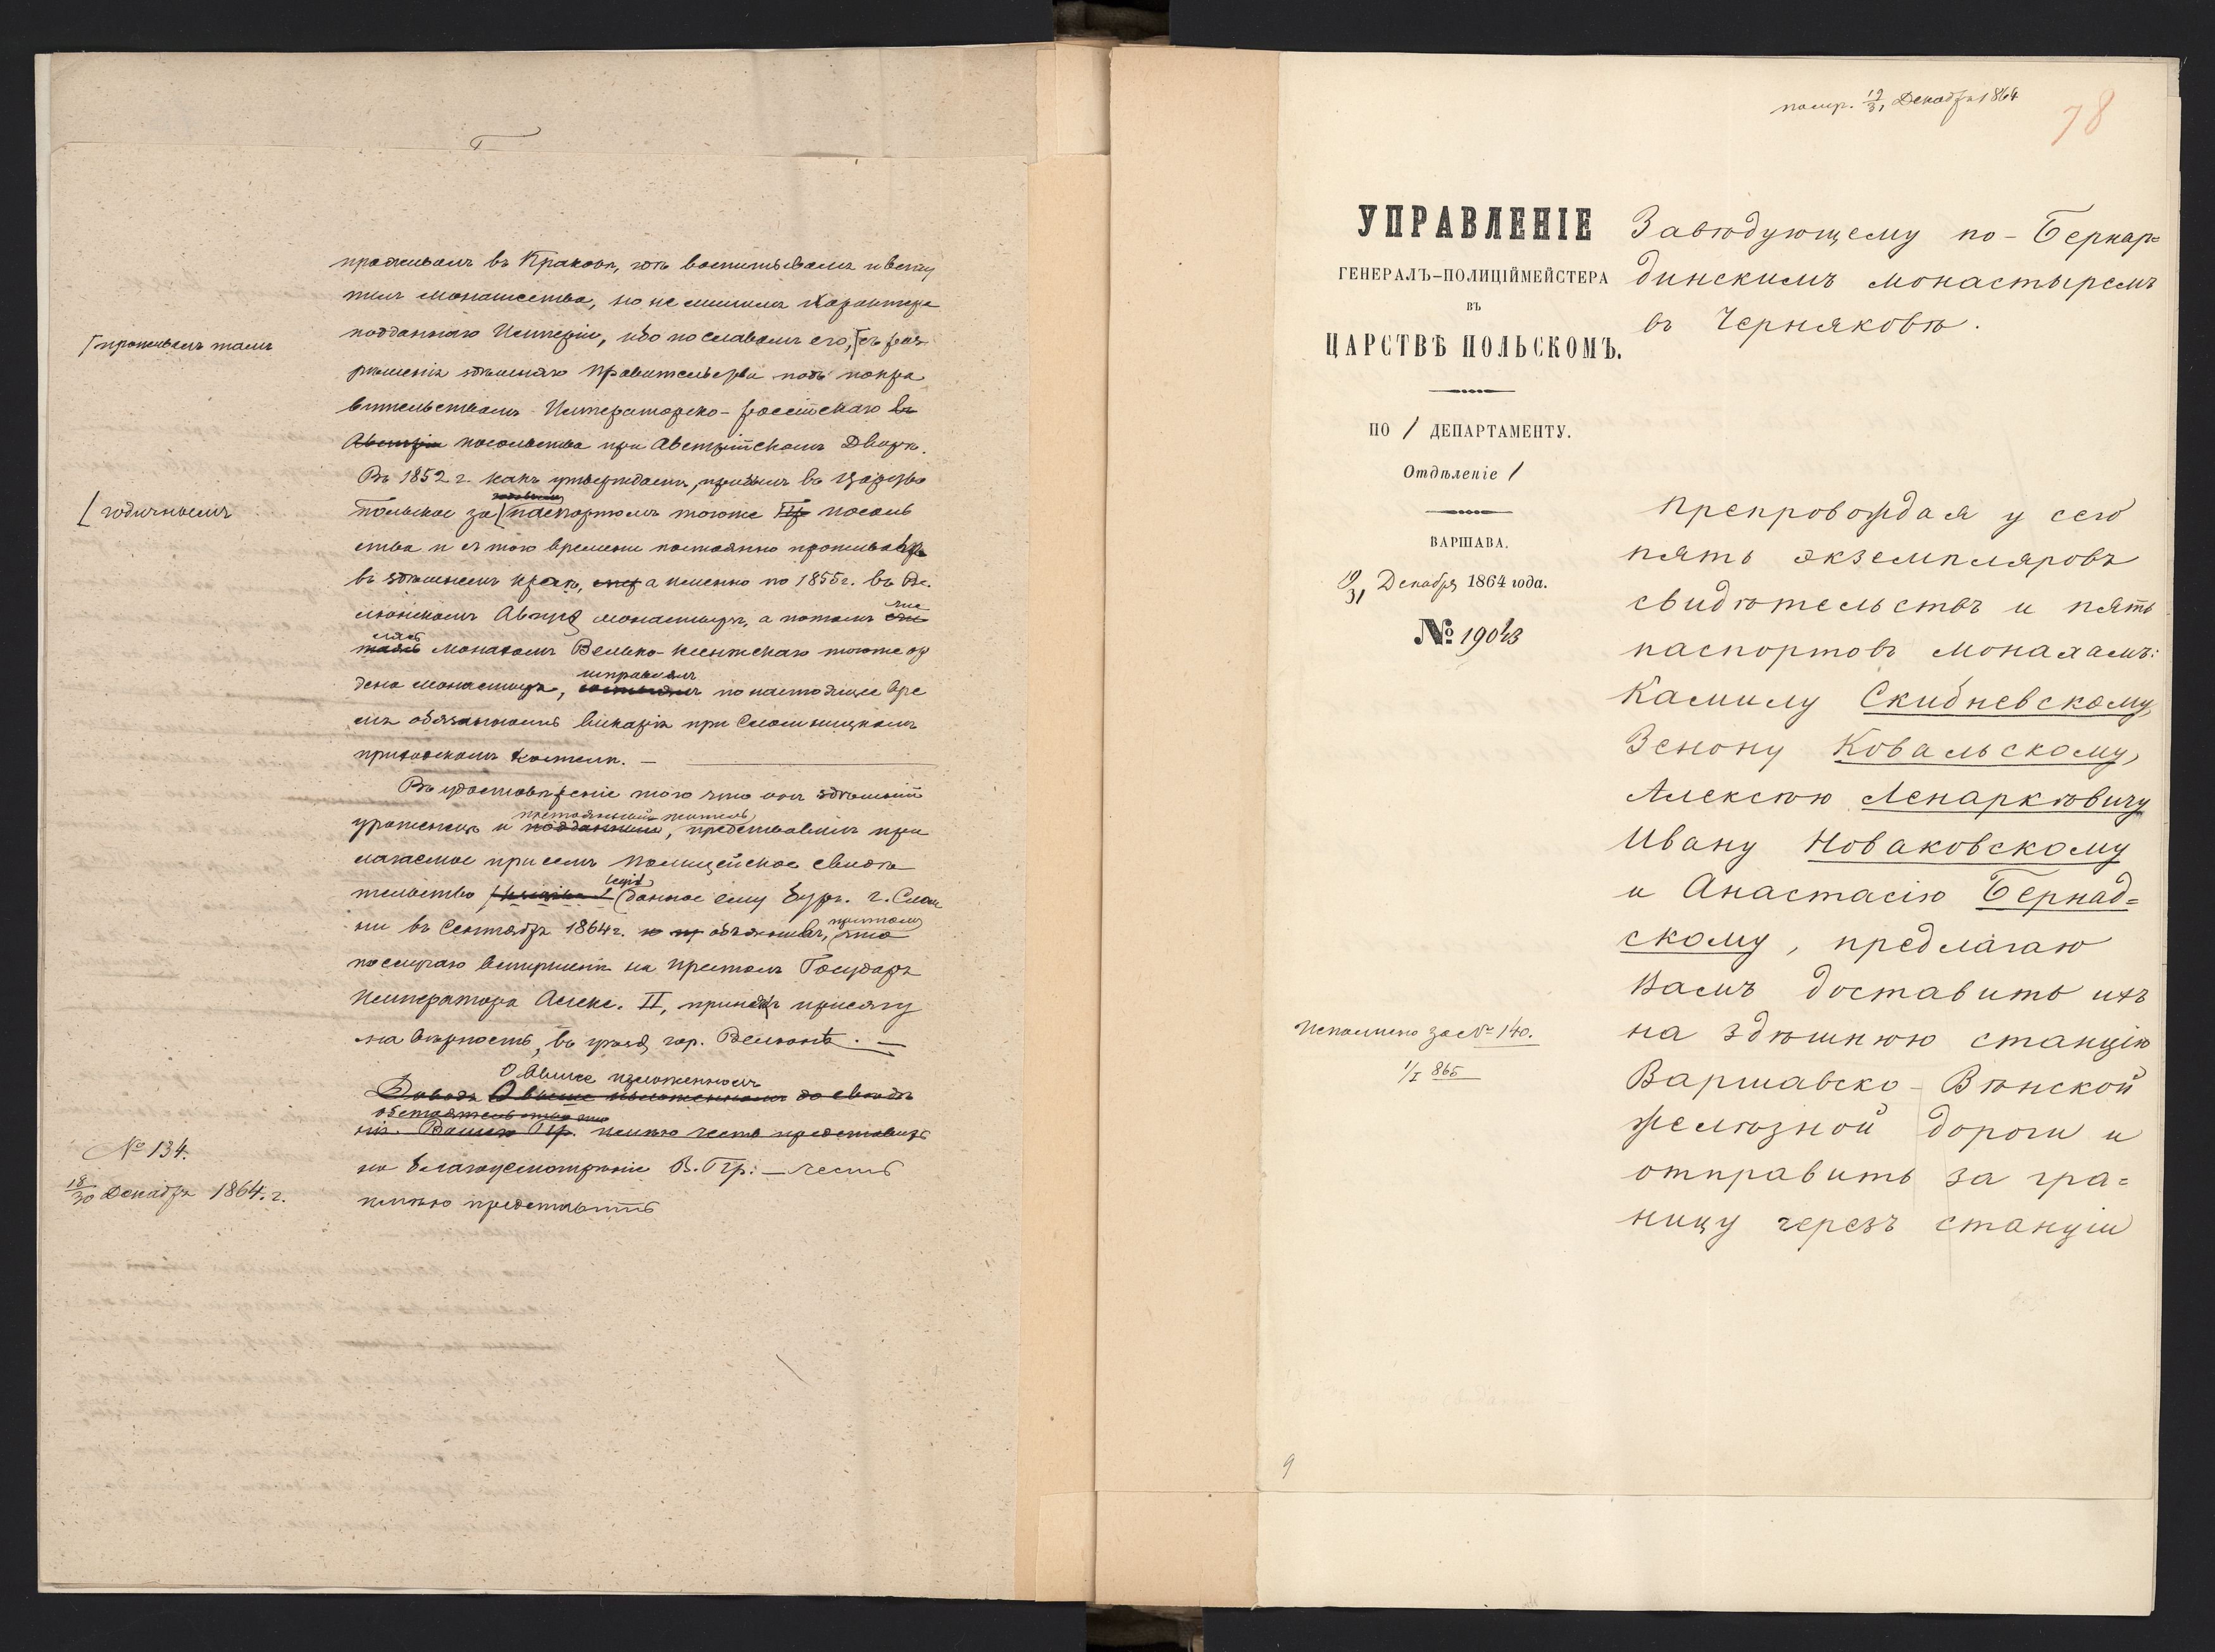 проживалъ въ Краковѣ, гдѣ воспитывался и всту
пилъ монашество, но не лишился характера
подданнаго Имперіи, ибо по словамъ его, [съ раз
[проживалъ тамъ
рѣшенія здѣшняго Правительства подъ покро
вительствомъ Императорско-россійскаго въ
Австріи посольства при Австрійскомъ Дворѣ.
Въ 1852 г. какъ утверждаетъ, прибылъ въ Царство
Польское за [паспортомъ тогоже посоль
[годичнымъ
ства и съ того времени постоянно проживаетъ
въ здѣшнемъ краѣ, а именно по 1855 г. въ Ве
люнскомъ монастырѣ, а потомъ
монахомъ Велико-тогоже ор
дена монастыря, исправлялъ по настоящее вре
мя обязанность викарія при
приходскомъ костелѣ. —
Въ удостовѣреніе того что онъ здѣшній
постоянный житель
уроженецъ и подданный, представилъ при
лагаемое при семъ Полицейское свидѣ
тельство данное ему Бург. г.
ни въ Сентябрѣ 1864 г. объяснивъ, притомъ что
по случаю вступленія на престолъ Государя
Императора Алекс. II, принялъ присягу
на вѣрность, въ гор. Велюнѣ. —
О выше изложенномъ
О выше изложенномъ до свѣдѣ
нія. имѣю честь представить
на благоусмотрѣніе В. Пр: — честь
имѣю представить
№ 134.
18/30 Декабря 1864. г.
получ. 19/31 Декабря 1864
78
УПРАВЛЕНІЕ
ГЕНЕРАЛЪ-ПОЛИЦІЙМЕЙСТЕРА
ВЪ
ЦАРСТВѢ ПОЛЬСКОМЪ.
ПО I ДЕПАРТАМЕНТУ.
Отдѣленіе I
ВАРШАВА.
19/31 Декабря 1864 года.
№ 19043
Завѣдующему по-Бернар=
динскимъ монастыремъ
въ Черняковѣ.
Препровождая у сего
пять экземпляровъ
свидѣтельствъ и пять
паспортовъ монахамъ:
Камилу Скибневскому,
Зенону Ковальскому,
Алексѣю Ленаркѣвичу
Ивану Новаковскому
и Анастасію Бернад=
скому, предлагаю
Вамъ доставить ихъ
на здѣшнюю станцію
Варшавско-Вѣнской
желѣзной дороги и
отправить за гра=
ницу черезъ станціи
Исполнено за № 140.
1/I 865
9